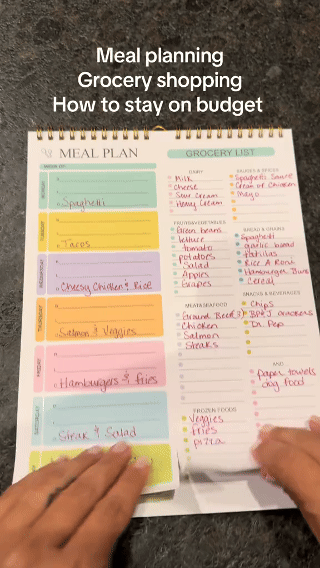 Meal planning
Grocery shopping
How to stay on budget
MEAL PLAN
MONDAY
Spaghetti
TUESDAY
Tacos
WEDNESDAY
Cheesy Chicken & Rice
THURSDAY
Salmon & Veggies
FRIDAY
Hamburgers & fries
SATURDAY
Steak & Salad
GROCERY LIST
DAIRY
Milk
Cheese
Sour Cream
Heavy Cream
FRUITS&VEGETABLES
Green beans
lettuce
tomato
potatoes
Salad
Apples
Grapes
MEAT&SEAFOOD
Ground Beef
Chicken
Salmon
Steaks
FROZEN FOODS
Veggies
fries
pizza
SAUCES & SPICES
Spaghetti Sauce
Cream of Chicken
Mayo
BREAD & GRAINS
Spaghetti
garlic bread
Rice A Roni
Hamburger Buns
Cereal
SNACKS & BEVERAGES
Chips
crackers
Dr. Pep
AND
paper towels
dog food